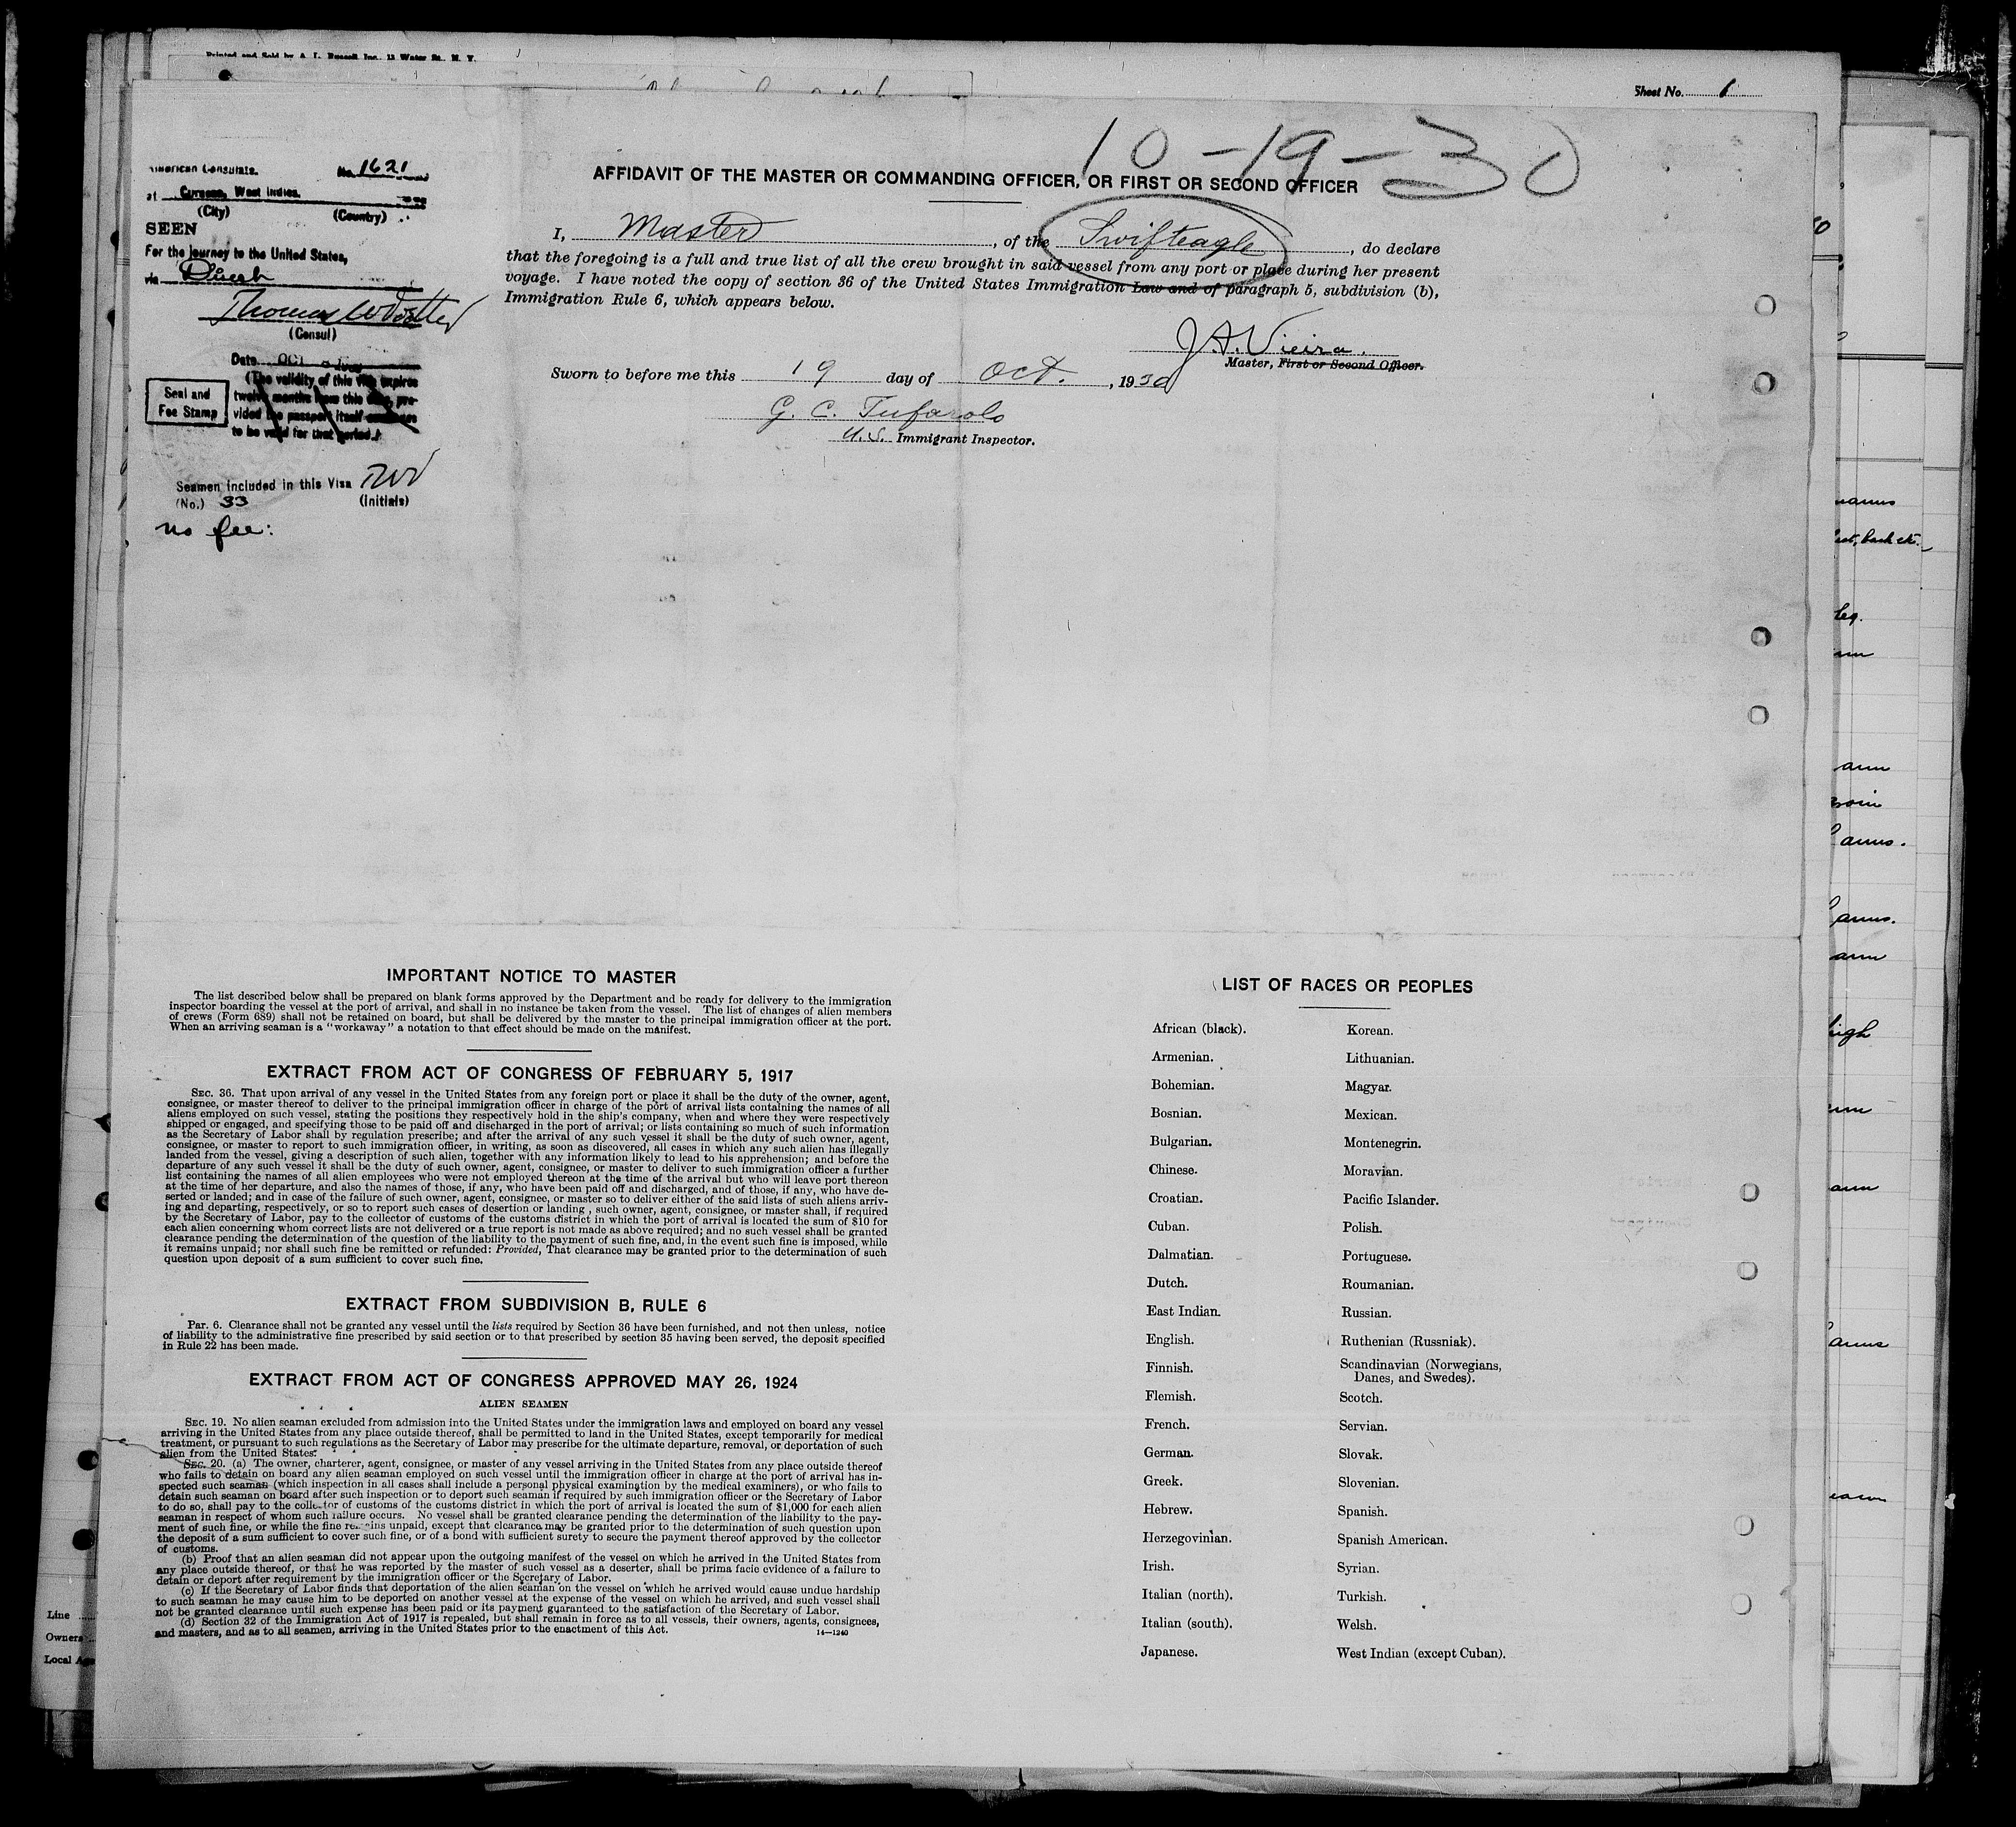 Printed and Sold by A. L. Russell Inc. 13 Water St. N. Y.
Sheet No. 1
10-19-30
American Consulate. No. 1621
at Curacao, West Indies.
(City) (Country)
SEEN
For the journey to the United States,
via Direct
(Consul)
Date OCT
(The validity of this visa expires
twelve months from this date, pro-
vided the passport itself continues
to be valid for that period.)
Seal and
Fee Stamp
Seamen included in this Visa
(No.) 33 (Initials)
no fee:
AFFIDAVIT OF THE MASTER OR COMMANDING OFFICER, OR FIRST OR SECOND OFFICER
I, Master, of the Swifteagle, do declare
that the foregoing is a full and true list of all the crew brought in said vessel from any port or place during her present
voyage. I have noted the copy of section 36 of the United States Immigration Law and of paragraph 5, subdivision (b),
Immigration Rule 6, which appears below.
J. A. Vieira.
Master, First or Second Officer.
Sworn to before me this 19 day of Oct., 1930
G. C. Tufarolo
U.S. Immigrant Inspector.
IMPORTANT NOTICE TO MASTER
The list described below shall be prepared on blank forms approved by the Department and be ready for delivery to the immigration
inspector boarding the vessel at the port of arrival, and shall in no instance be taken from the vessel. The list of changes of alien members
of crews (Form 689) shall not be retained on board, but shall be delivered by the master to the principal immigration officer at the port.
When an arriving seaman is a "workaway" a notation to that effect should be made on the manifest.
EXTRACT FROM ACT OF CONGRESS OF FEBRUARY 5, 1917
SEC. 36. That upon arrival of any vessel in the United States from any foreign port or place it shall be the duty of the owner, agent,
consignee, or master thereof to deliver to the principal immigration officer in charge of the port of arrival lists containing the names of all
aliens employed on such vessel, stating the positions they respectively hold in the ship's company, when and where they were respectively
shipped or engaged, and specifying those to be paid off and discharged in the port of arrival; or lists containing so much of such information
as the Secretary of Labor shall by regulation prescribe; and after the arrival of any such vessel it shall be the duty of such owner, agent,
consignee, or master to report to such immigration officer, in writing, as soon as discovered, all cases in which any such alien has illegally
landed from the vessel, giving a description of such alien, together with any information likely to lead to his apprehension; and before the
departure of any such vessel it shall be the duty of such owner, agent, consignee, or master to deliver to such immigration officer a further
list containing the names of all alien employees who were not employed thereon at the time of the arrival but who will leave port thereon
at the time of her departure, and also the names of those, if any, who have been paid off and discharged, and of those, if any, who have de-
serted or landed; and in case of the failure of such owner, agent, consignee, or master so to deliver either of the said lists of such aliens arriv-
ing and departing, respectively, or so to report such cases of desertion or landing , such owner, agent, consignee, or master shall, if required
by the Secretary of Labor, pay to the collector of customs of the customs district in which the port of arrival is located the sum of $10 for
each alien concerning whom correct lists are not delivered or a true report is not made as above required; and no such vessel shall be granted
clearance pending the determination of the question of the liability to the payment of such fine, and, in the event such fine is imposed, while
it remains unpaid; nor shall such fine be remitted or refunded: Provided, That clearance may be granted prior to the determination of such
question upon deposit of a sum sufficient to cover such fine.
EXTRACT FROM SUBDIVISION B, RULE 6
PAR. 6. Clearance shall not be granted any vessel until the lists required by Section 36 have been furnished, and not then unless, notice
of liability to the administrative fine prescribed by said section or to that prescribed by section 35 having been served, the deposit specified
in Rule 22 has been made.
EXTRACT FROM ACT OF CONGRESS APPROVED MAY 26, 1924
ALIEN SEAMEN
SEC. 19. No alien seaman excluded from admission into the United States under the immigration laws and employed on board any vessel
arriving in the United States from any place outside thereof, shall be permitted to land in the United States, except temporarily for medical
treatment, or pursuant to such regulations as the Secretary of Labor may prescribe for the ultimate departure, removal, or deportation of such
alien from the United States.
SEC. 20. (a) The owner, charterer, agent, consignee, or master of any vessel arriving in the United States from any place outside thereof
who fails to detain on board any alien seaman employed on such vessel until the immigration officer in charge at the port of arrival has in-
spected such seaman (which inspection in all cases shall include a personal physical examination by the medical examiners), or who fails to
detain such seaman on board after such inspection or to deport such seaman if required by such immigration officer or the Secretary of Labor
to do so, shall pay to the collector of customs of the customs district in which the port of arrival is located the sum of $1,000 for each alien
seaman in respect of whom such failure occurs. No vessel shall be granted clearance pending the determination of the liability to the pay-
ment of such fine, or while the fine remains unpaid, except that clearance may be granted prior to the determination of such question upon
the deposit of a sum sufficient to cover such fine, or of a bond with sufficient surety to secure the payment thereof approved by the collector
of customs.
(b) Proof that an alien seaman did not appear upon the outgoing manifest of the vessel on which he arrived in the United States from
any place outside thereof, or that he was reported by the master of such vessel as a deserter, shall be prima facie evidence of a failure to
detain or deport after requirement by the immigration officer or the Secretary of Labor.
(c) If the Secretary of Labor finds that deportation of the alien seaman on the vessel on which he arrived would cause undue hardship
to such seaman he may cause him to be deported on another vessel at the expense of the vessel on which he arrived, and such vessel shall
not be granted clearance until such expense has been paid or its payment guaranteed to the satisfaction of the Secretary of Labor.
(d) Section 32 of the Immigration Act of 1917 is repealed, but shall remain in force as to all vessels, their owners, agents, consignees,
and masters, and as to all seamen, arriving in the United States prior to the enactment of this Act.
14—1240
LIST OF RACES OR PEOPLES
African (black). Korean.
Armenian. Lithuanian.
Bohemian. Magyar.
Bosnian. Mexican.
Bulgarian. Montenegrin.
Chinese. Moravian.
Croatian. Pacific Islander.
Cuban. Polish.
Dalmatian. Portuguese.
Dutch. Roumanian.
East Indian. Russian.
English. Ruthenian (Russniak).
Finnish. Scandinavian (Norwegians,
Danes, and Swedes).
Flemish. Scotch.
French. Servian.
German. Slovak.
Greek. Slovenian.
Hebrew. Spanish.
Herzegovinian. Spanish American.
Irish. Syrian.
Italian (north). Turkish.
Italian (south). Welsh.
Japanese. West Indian (except Cuban).
Line
Owners
Local